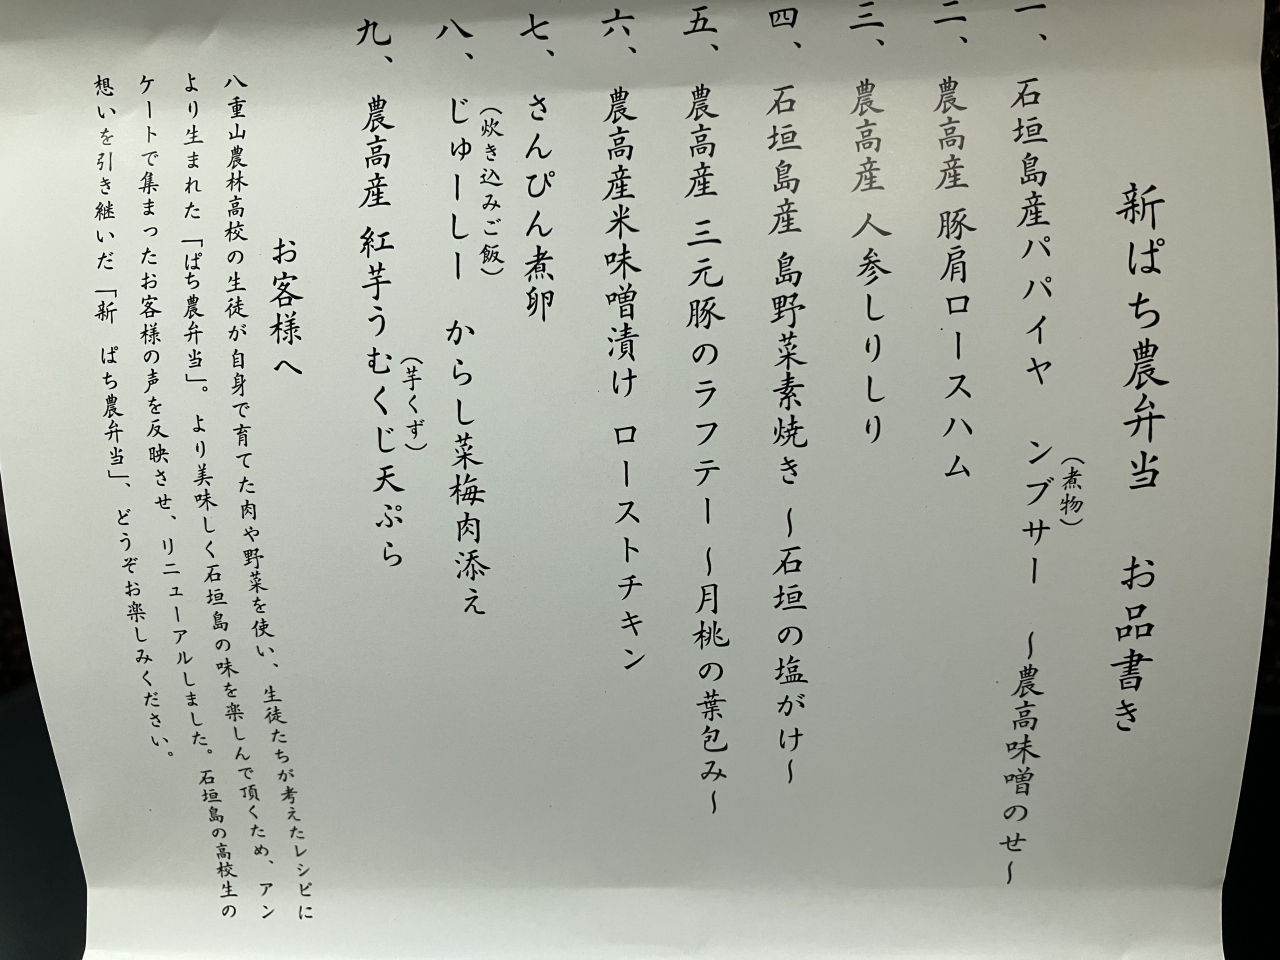 新ぱち農弁当　お品書き
一、石垣島産パパイヤ　ンブサー（煮物）　～農高味噌のせ～
二、農高産 豚肩ロースハム
三、農高産 人参しりしり
四、石垣島産 島野菜素焼き ～石垣の塩がけ～
五、農高産 三元豚のラフテー ～月桃の葉包み～
六、農高産米味噌漬け ローストチキン
七、さんぴん煮卵
八、じゅーしー（炊き込みご飯）　からし菜梅肉添え
九、農高産 紅芋うむくじ（芋くず）天ぷら
お客様へ
八重山農林高校の生徒が自身で育てた肉や野菜を使い、生徒たちが考えたレシピに
より生まれた「ぱち農弁当」。より美味しく石垣島の味を楽しんで頂くため、アン
ケートで集まったお客様の声を反映させ、リニューアルしました。石垣島の高校生の
想いを引き継いだ「新　ぱち農弁当」、どうぞお楽しみください。